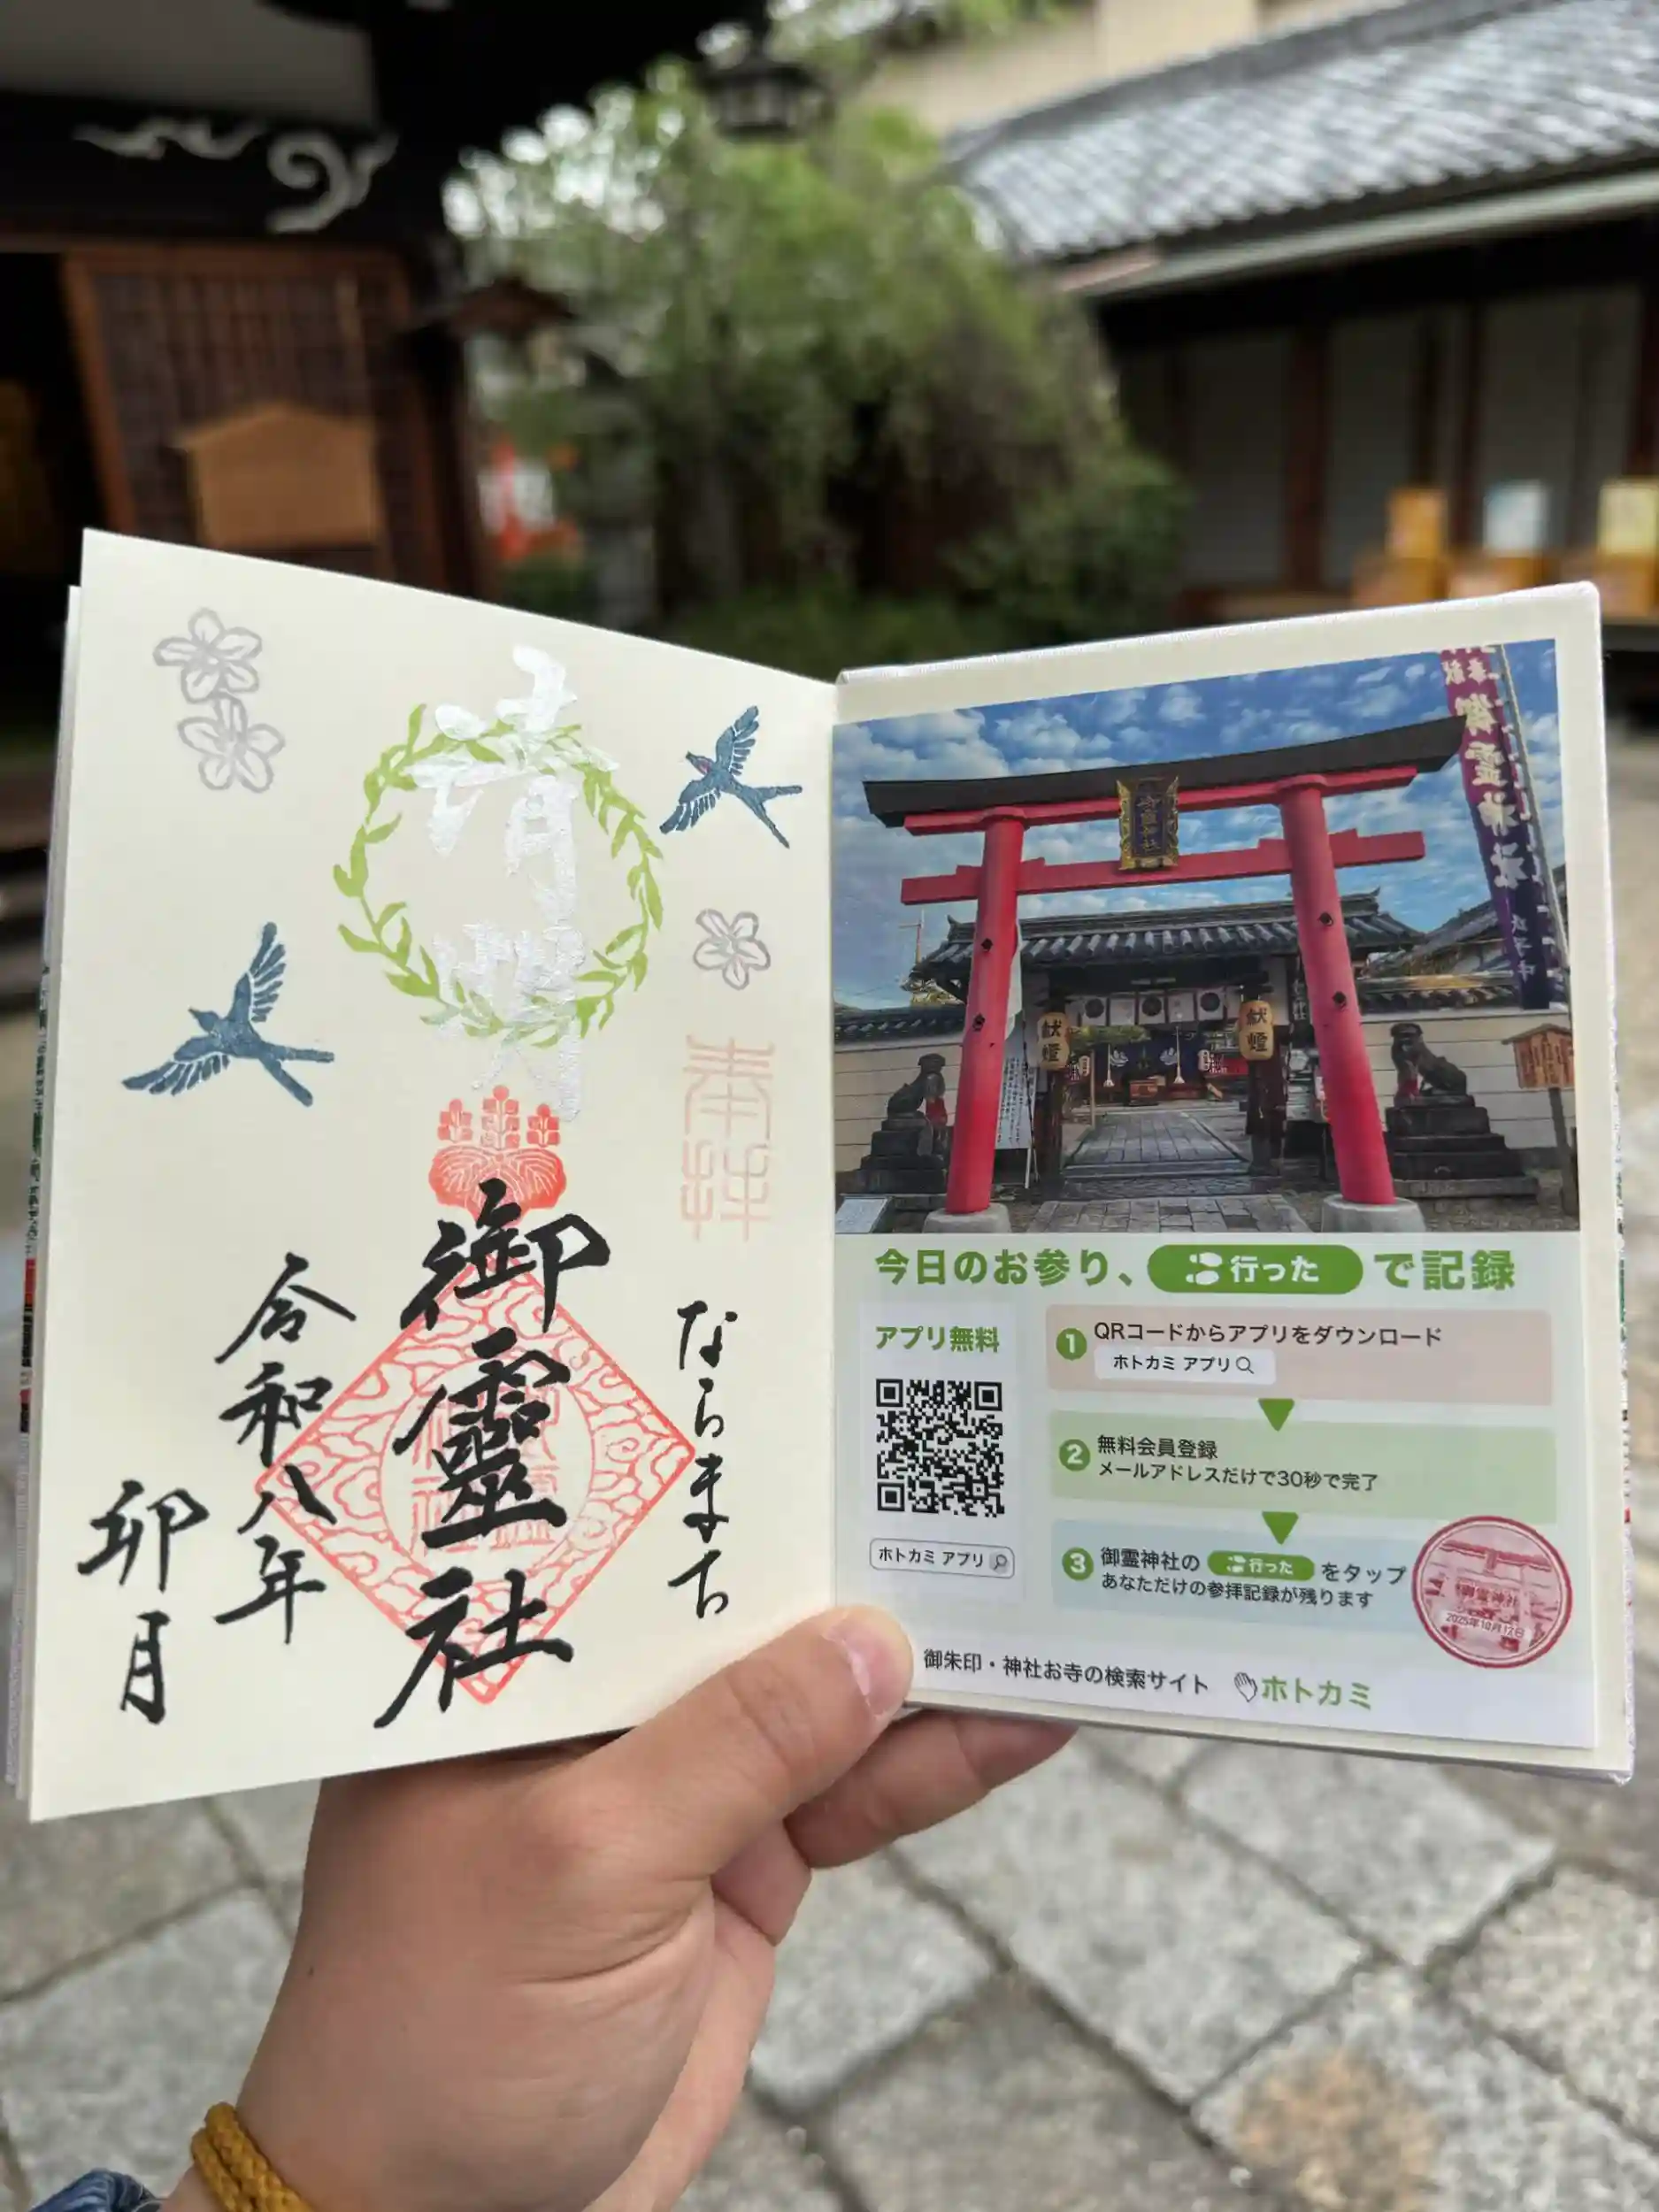 奉拝
ならまち
清明
御靈社
令和八年
卯月
御霊神社
献燈
献燈
今日のお参り、行ったで記録
アプリ無料
ホトカミ アプリ
1 QRコードからアプリをダウンロード
ホトカミ アプリ
2 無料会員登録
メールアドレスだけで30秒で完了
3 御霊神社の 行った をタップ
あなただけの参拝記録が残ります
御霊神社
2025年10月12日
御朱印・神社お寺の検索サイト ホトカミ